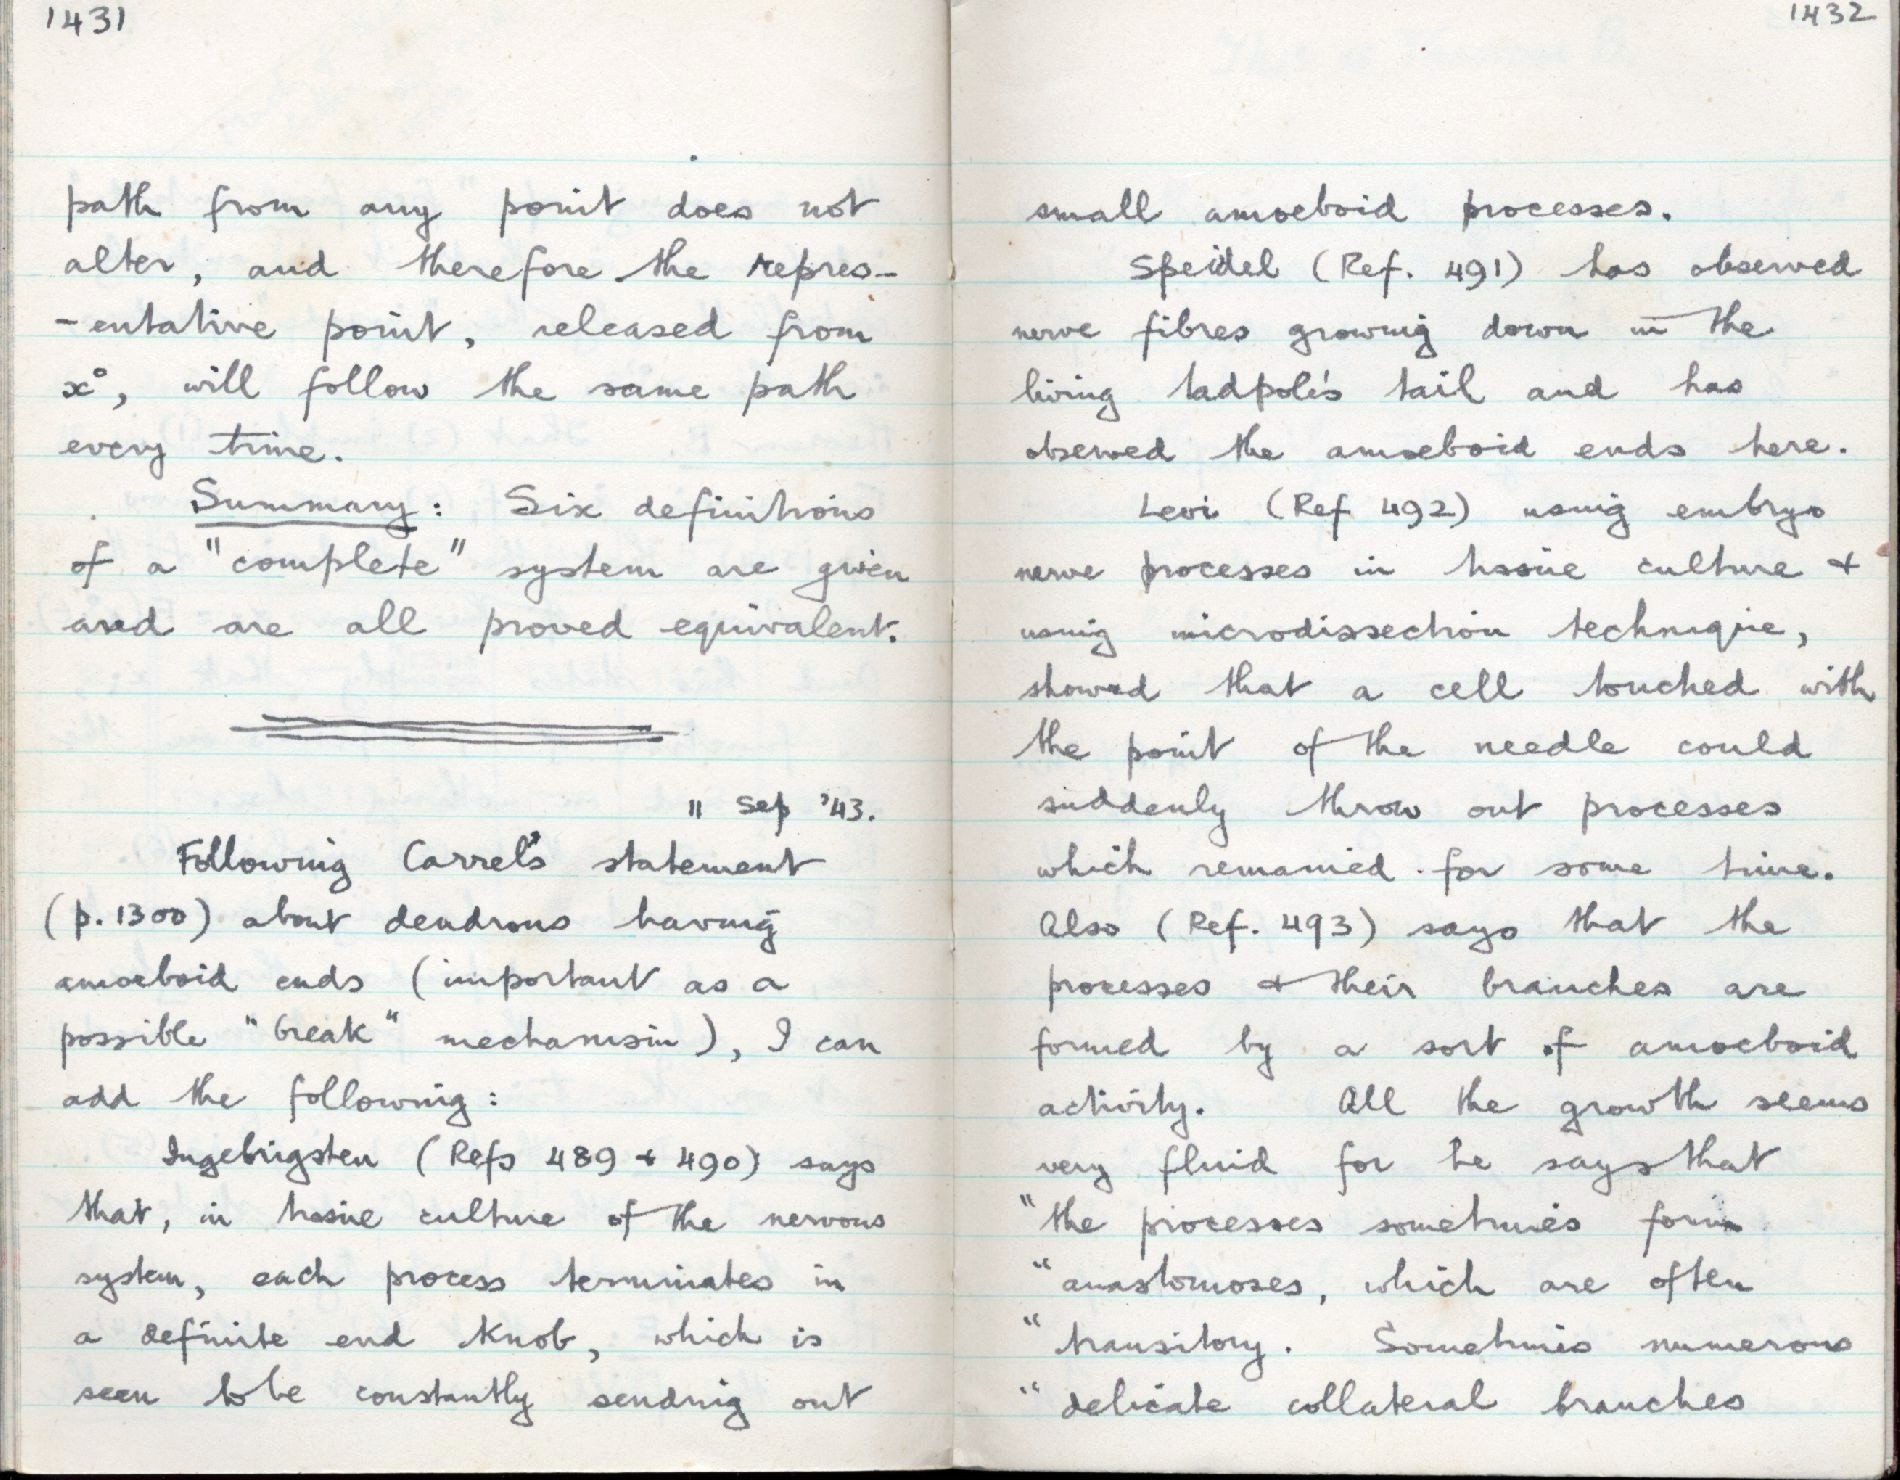 1431
path from any point does not
alter, and therefore the repres-
-entative point, released from
x°, will follow the same path
every time.
Summary: Six definitions
of a "complete" system are given
and are all proved equivalent.
11 Sep '43.
Following Carrel's statement
(p. 1300) about dendrons having
amoeboid ends (important as a
possible "break" mechanism), I can
add the following:
Ingebrigsten (Refs 489 & 490) says
that, in tissue culture of the nervous
system, each process terminates in
a definite end knob, which is
seen to be constantly sending out
1432
small amoeboid processes.
Speidel (Ref. 491) has observed
nerve fibres growing down in the
living tadpole's tail and has
observed the amoeboid ends here.
Levi (Ref 492) using embryo
nerve processes in tissue culture &
using microdissection technique,
showed that a cell touched with
the point of the needle could
suddenly throw out processes
which remained for some time.
Also (Ref. 493) says that the
processes & their branches are
formed by a sort of amoeboid
activity. All the growth seems
very fluid for he says that
"the processes sometimes form
"anastomoses, which are often
"transitory. Sometimes numerous
"delicate collateral branches